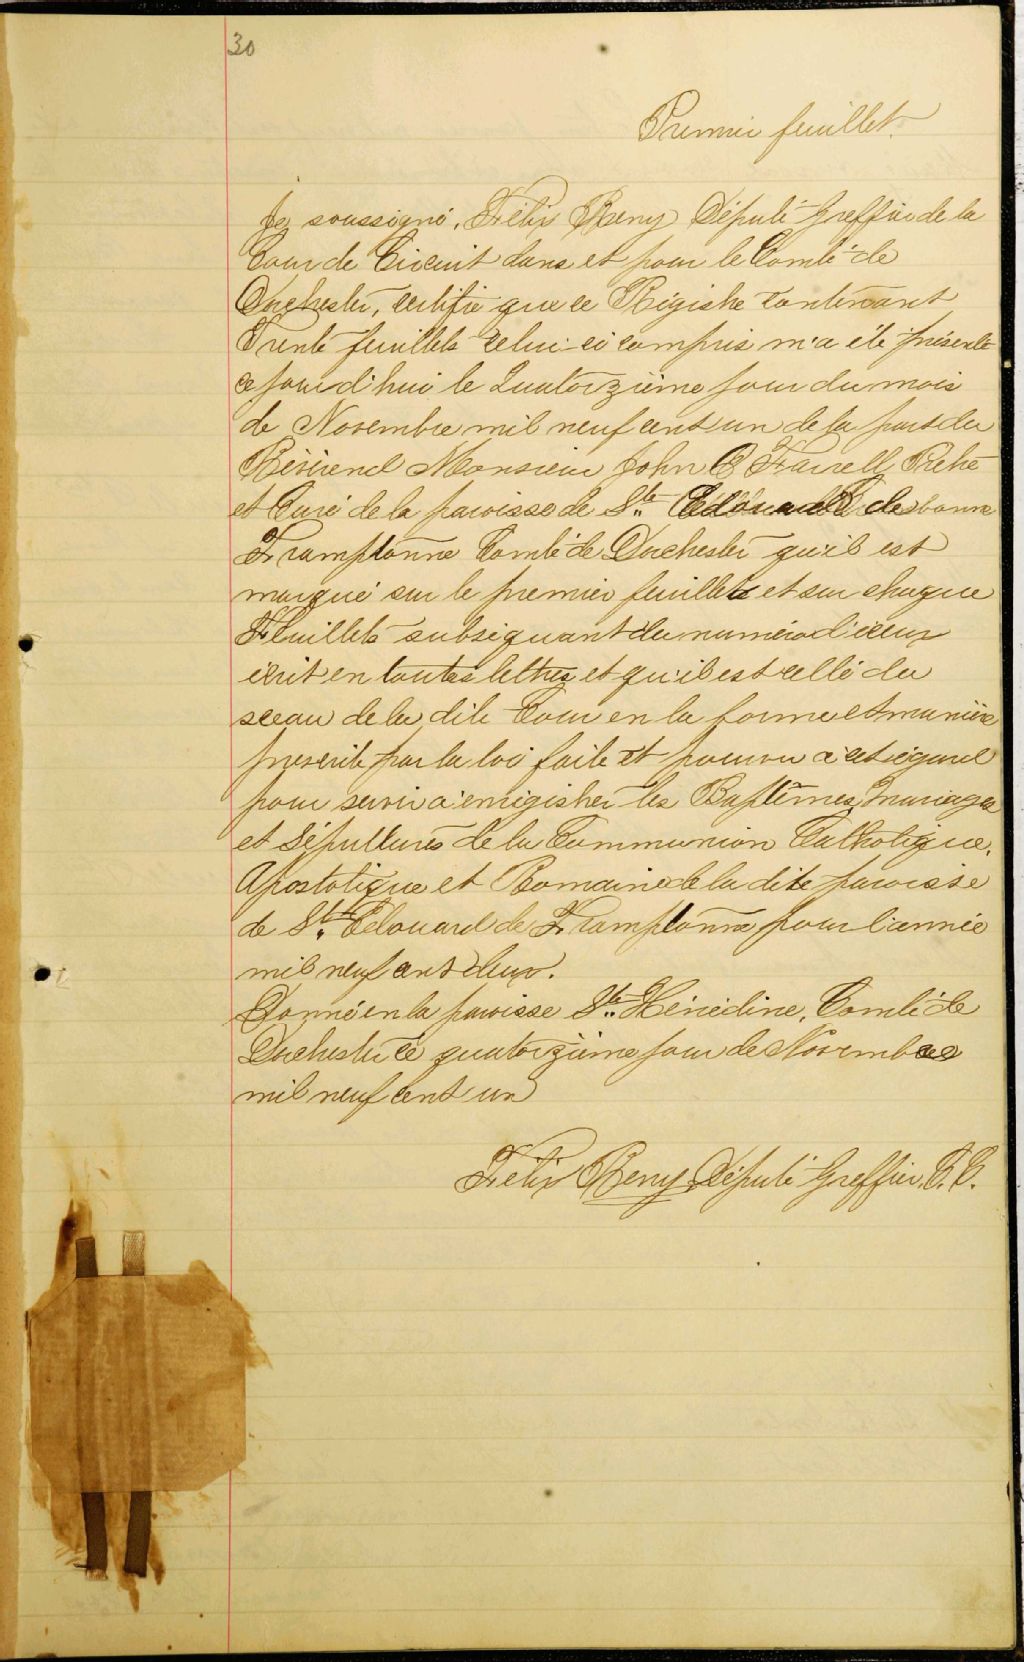 30
Premier feuillet.
Je soussigné, Félix Reny Député Greffier de la
Cour de Circuit dans et pour le Comté de
Dorchester, certifie que ce Régistre contenant
Trente feuillets celui-ci compris m'a été présenté
ce jourd'hui le Quatorzième jour du mois
de Novembre mil neuf cent un de la part du
Révérend Monsieur John O Farrell Prêtre
et Curé de la paroisse de Ste Edouard de
Framptonne Comté de Dorchester qu'il est
marqué sur le premier feuillets et sur chaque
Feuillets subséquant du numéro d'iceux
écrit en toutes lettres et qu'il est cellé du
sceau de la dite Cour en la forme et manière
prescrite par la loi faite et pourvu à cet égard
pour servir à enrégistrer les Baptêmes, Mariages
et Sépultures de la Communion Catholique,
Apostolique et Romaine de la dite paroisse
de St. Edouard de Framptonne pour l'année
mil neuf cent deux.
Donné en la paroisse Ste Hénédine, Comté de
Dorchester ce quatorzième jour de Novembre
mil neuf cent un
Félix Reny Député Greffier, C. C.